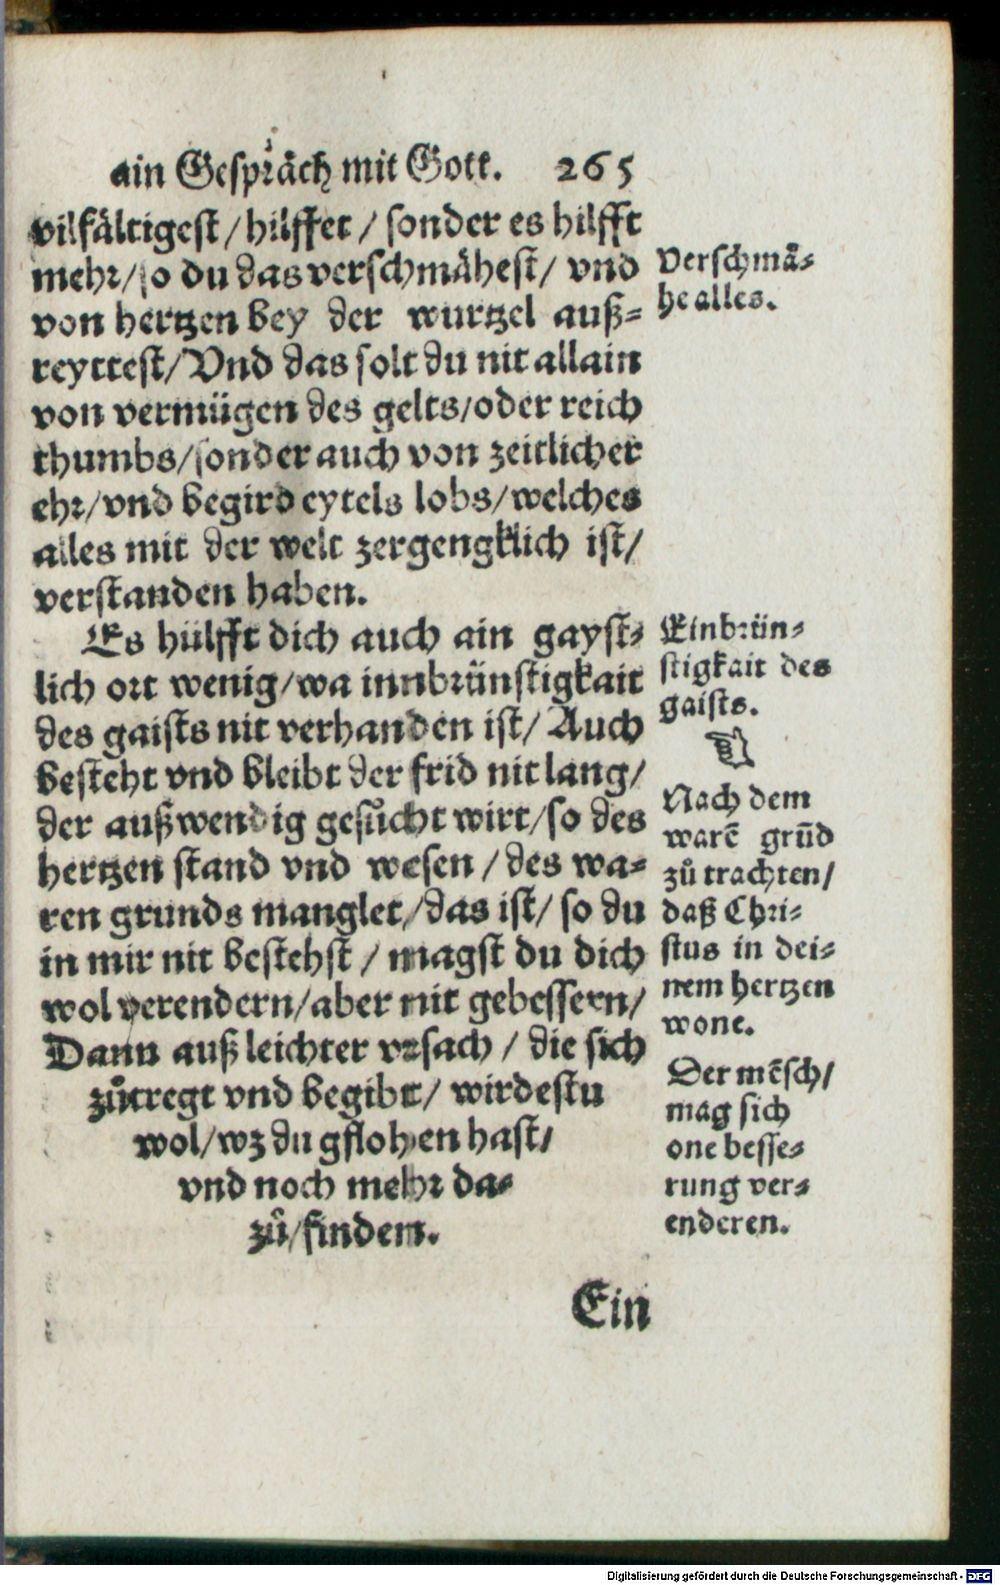 ain Gespräch mit Gott. 265
vilfältigest / hilffet / sonder es hilfft
mehr / so du das verschmähest / vnd
von hertzen bey der wurtzel auß-
reyttest / Vnd das solt du nit allain
von vermügen des gelts / oder reich
thumbs / sonder auch von zeitlicher
ehr / vnd begird eytels lobs / welches
alles mit der welt zergengklich ist /
verstanden haben.
Es hülfft dich auch ain gayst-
lich ort wenig / wa innbrünstigkait
des gaists nit verhanden ist / Auch
besteht vnd bleibt der frid nit lang /
der außwendig gesůcht wirt / so des
hertzen stand vnd wesen / des wa-
ren grunds manglet / das ist / so du
in mir nit bestehst / magst du dich
wol verendern / aber nit gebessern /
Dann auß leichter vrsach / die sich
zůtregt vnd begibt / wirdestu
wol / wz du gflohen hast /
vnd noch mehr da-
zů / finden.
Ein
Verschmä-
he alles.
Einbrün-
stigkait des
gaists.
☜
Nach dem
warē grūd
zů trachten /
daß Chri-
stus in dei-
nem hertzen
wone.
Der mēsch /
mag sich
one besse-
rung ver-
enderen.
Digitalisierung gefördert durch die Deutsche Forschungsgemeinschaft - DFG